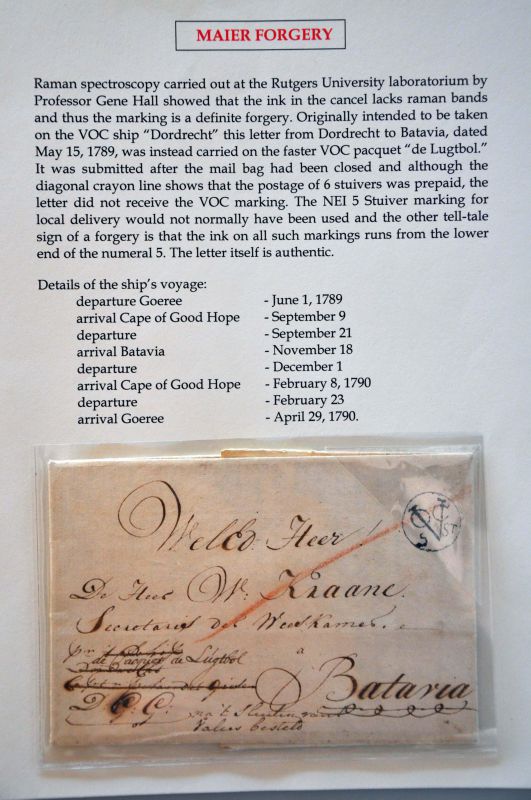 MAIER FORGERY
Raman spectroscopy carried out at the Rutgers University laboratorium by
Professor Gene Hall showed that the ink in the cancel lacks raman bands
and thus the marking is a definite forgery. Originally intended to be taken
on the VOC ship “Dordrecht” this letter from Dordrecht to Batavia, dated
May 15, 1789, was instead carried on the faster VOC pacquet “de Lugtbol.”
It was submitted after the mail bag had been closed and although the
diagonal crayon line shows that the postage of 6 stuivers was prepaid, the
letter did not receive the VOC marking. The NEI 5 Stuiver marking for
local delivery would not normally have been used and the other tell-tale
sign of a forgery is that the ink on all such markings runs from the lower
end of the numeral 5. The letter itself is authentic.
Details of the ship's voyage:
departure Goeree - June 1, 1789
arrival Cape of Good Hope - September 9
departure - September 21
arrival Batavia - November 18
departure - December 1
arrival Cape of Good Hope - February 8, 1790
departure - February 23
arrival Goeree - April 29, 1790.
Heer
De Heer W. Kraane.
Secretaris der Weeskamer.
de Pacquet de Lugtbol
a
Batavia
D G G